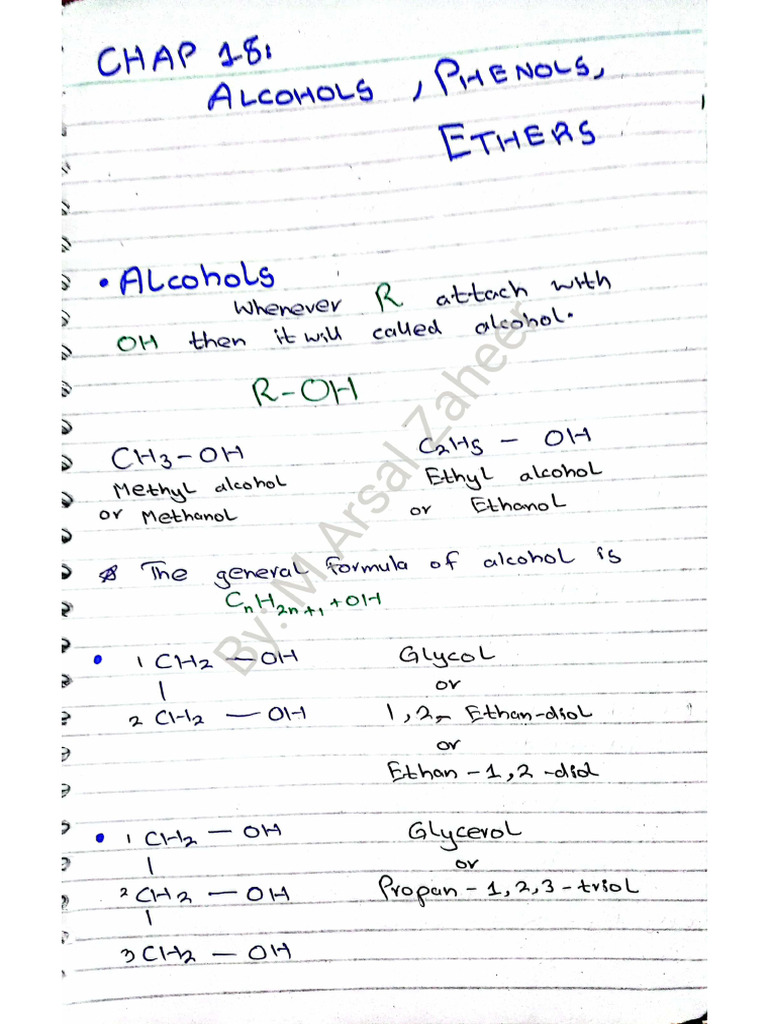 CHAP 18:
ALCOHOLS, PHENOLS,
ETHERS
• Alcohols
Whenever R attach with
OH then it will called alcohol.
R-OH
CH3-OH C2H5 - OH
Methyl alcohol Ethyl alcohol
or Methanol or Ethanol
The general formula of alcohol is
CnH2n+1+OH
• 1 CH2 — OH Glycol
| or
2 CH2 — OH 1,2- Ethan-diol
or
Ethan-1,2-diol
• 1 CH2 — OH Glycerol
| or
2 CH2 — OH Propan-1,2,3-triol
|
3 CH2 — OH
By: M Arsal Zaheer